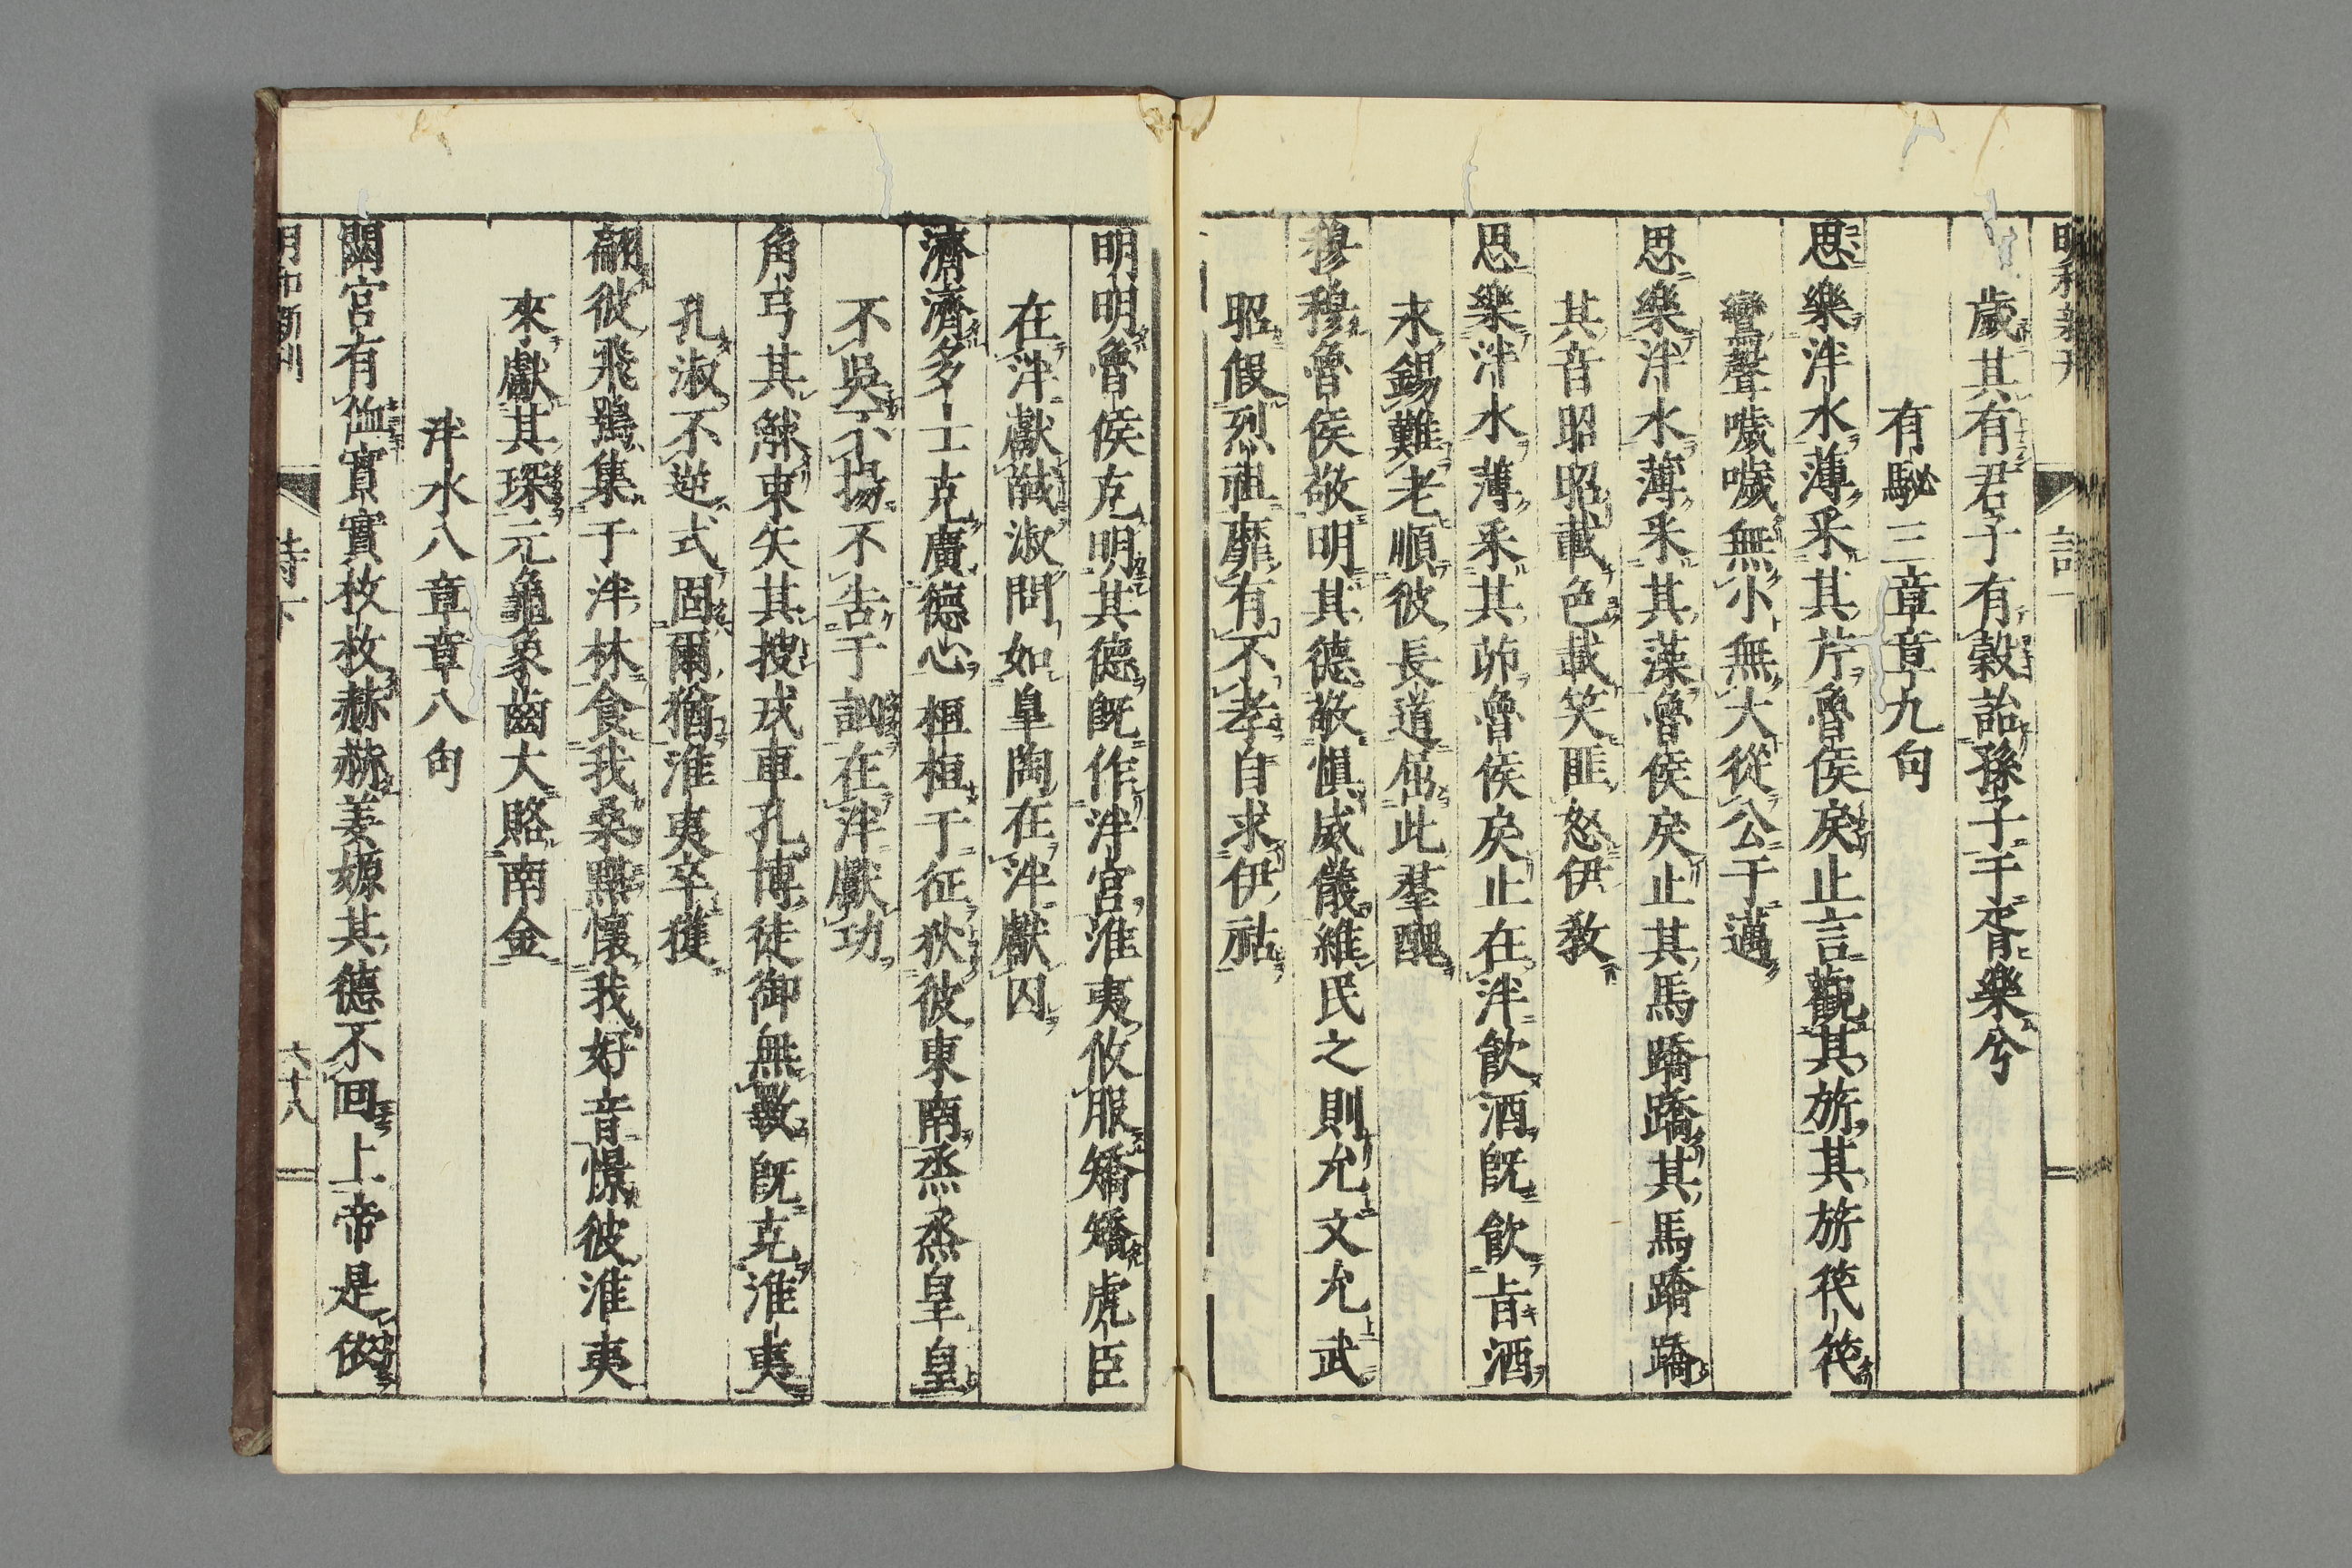 歲其有君子有穀詒孫子于胥樂兮
有駜三章章九句
思樂泮水薄采其芹魯侯戾止言觀其旂其旂筏筏
鸞聲噦噦無小無大從公于邁
思樂泮水薄采其藻魯侯戾止其馬蹻蹻其馬蹻蹻
其音昭昭載色載笑匪怒伊教
思樂泮水薄采其茆魯侯戾止在泮飮酒旣飮旨酒
永錫難老順彼長道屈此羣醜
穆穆魯侯敬明其德敬愼威儀維民之則允文允武
昭假烈祖靡有不孝自求伊祜
明明魯侯克明其德旣作泮宮淮夷攸服矯矯虎臣
在泮獻馘淑問如皐陶在泮獻囚
濟濟多士克廣德心桓桓于征狄彼東南烝烝皇皇
不吳不揚不告于訩在泮獻功
角弓其觩束矢其搜戎車孔博徒御無斁旣克淮夷
孔淑不逆式固爾猶淮夷卒獲
翩彼飛鴞集于泮林食我桑黮懷我好音憬彼淮夷
來獻其琛元龜象齒大賂南金
泮水八章章八句
閟宮有侐實實枚枚赫赫姜嫄其德不回上帝是依
明和新刊
詩下
六十八